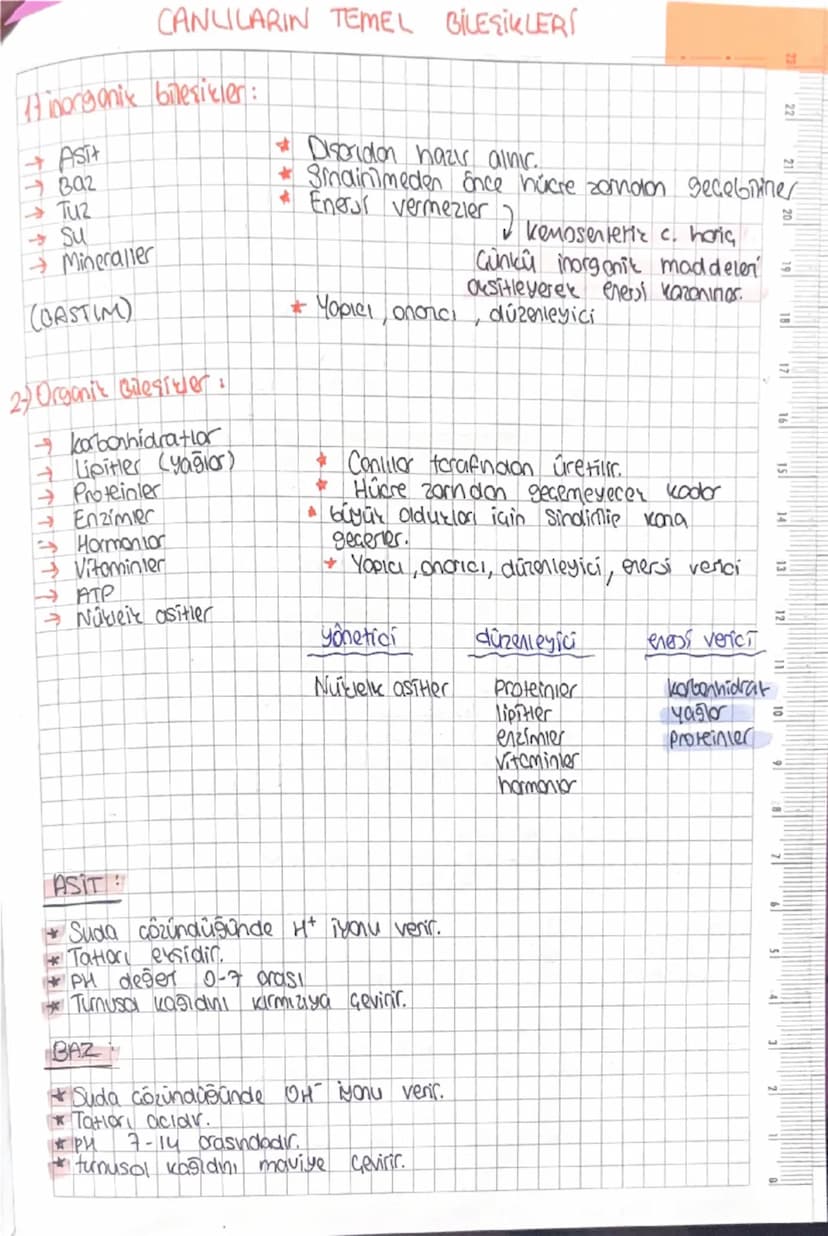 CANLILARIN TEMEL BİLEŞİKLERİ
1) inorganik bileşikler:
→ Asit
→ Baz
→ Tuz
→ Su
→ Mineraller
(BASTIM)
★ Dışarıdan hazır alınır.
★ Sindirilmeden önce hücre zarından geçebilirler
★ Enerji vermezler
↓ kemosentetik c. hariç
Çünkü inorganik maddeleri
oksitleyerek enerji kazanırlar.
★ Yapıcı, onarıcı, düzenleyici
2-) Organik Bileşikler:
→ karbonhidratlar
→ Lipitler (yağlar)
→ Proteinler
→ Enzimler
→ Hormonlar
→ Vitaminler
→ ATP
→ Nükleik asitler
★ Canlılar tarafından üretilir.
★ Hücre zarından geçemeyecek kadar
★ büyük oldukları için sindirilip kana
geçerler.
★ Yapıcı, onarıcı, düzenleyici, enerji verici
yönetici düzenleyici enerji verici
Nükleik asitler proteinler karbonhidrat
lipitler yağlar
enzimler proteinler
vitaminler
hormonlar
ASİT:
★ Suda çözündüğünde H⁺ iyonu verir.
★ Tatları ekşidir.
★ PH değer 0-7 arası
★ Turnusol kağıdını kırmızıya çevirir.
BAZ:
★ Suda çözündüğünde OH⁻ iyonu verir.
★ Tatları acıdır.
★ PH 7-14 arasındadır.
★ turnusol kağıdını maviye çevirir.
23
22
21
20
19
18
17
16
15
14
13
12
11
10
9
8
7
6
5
4
3
2
1
0